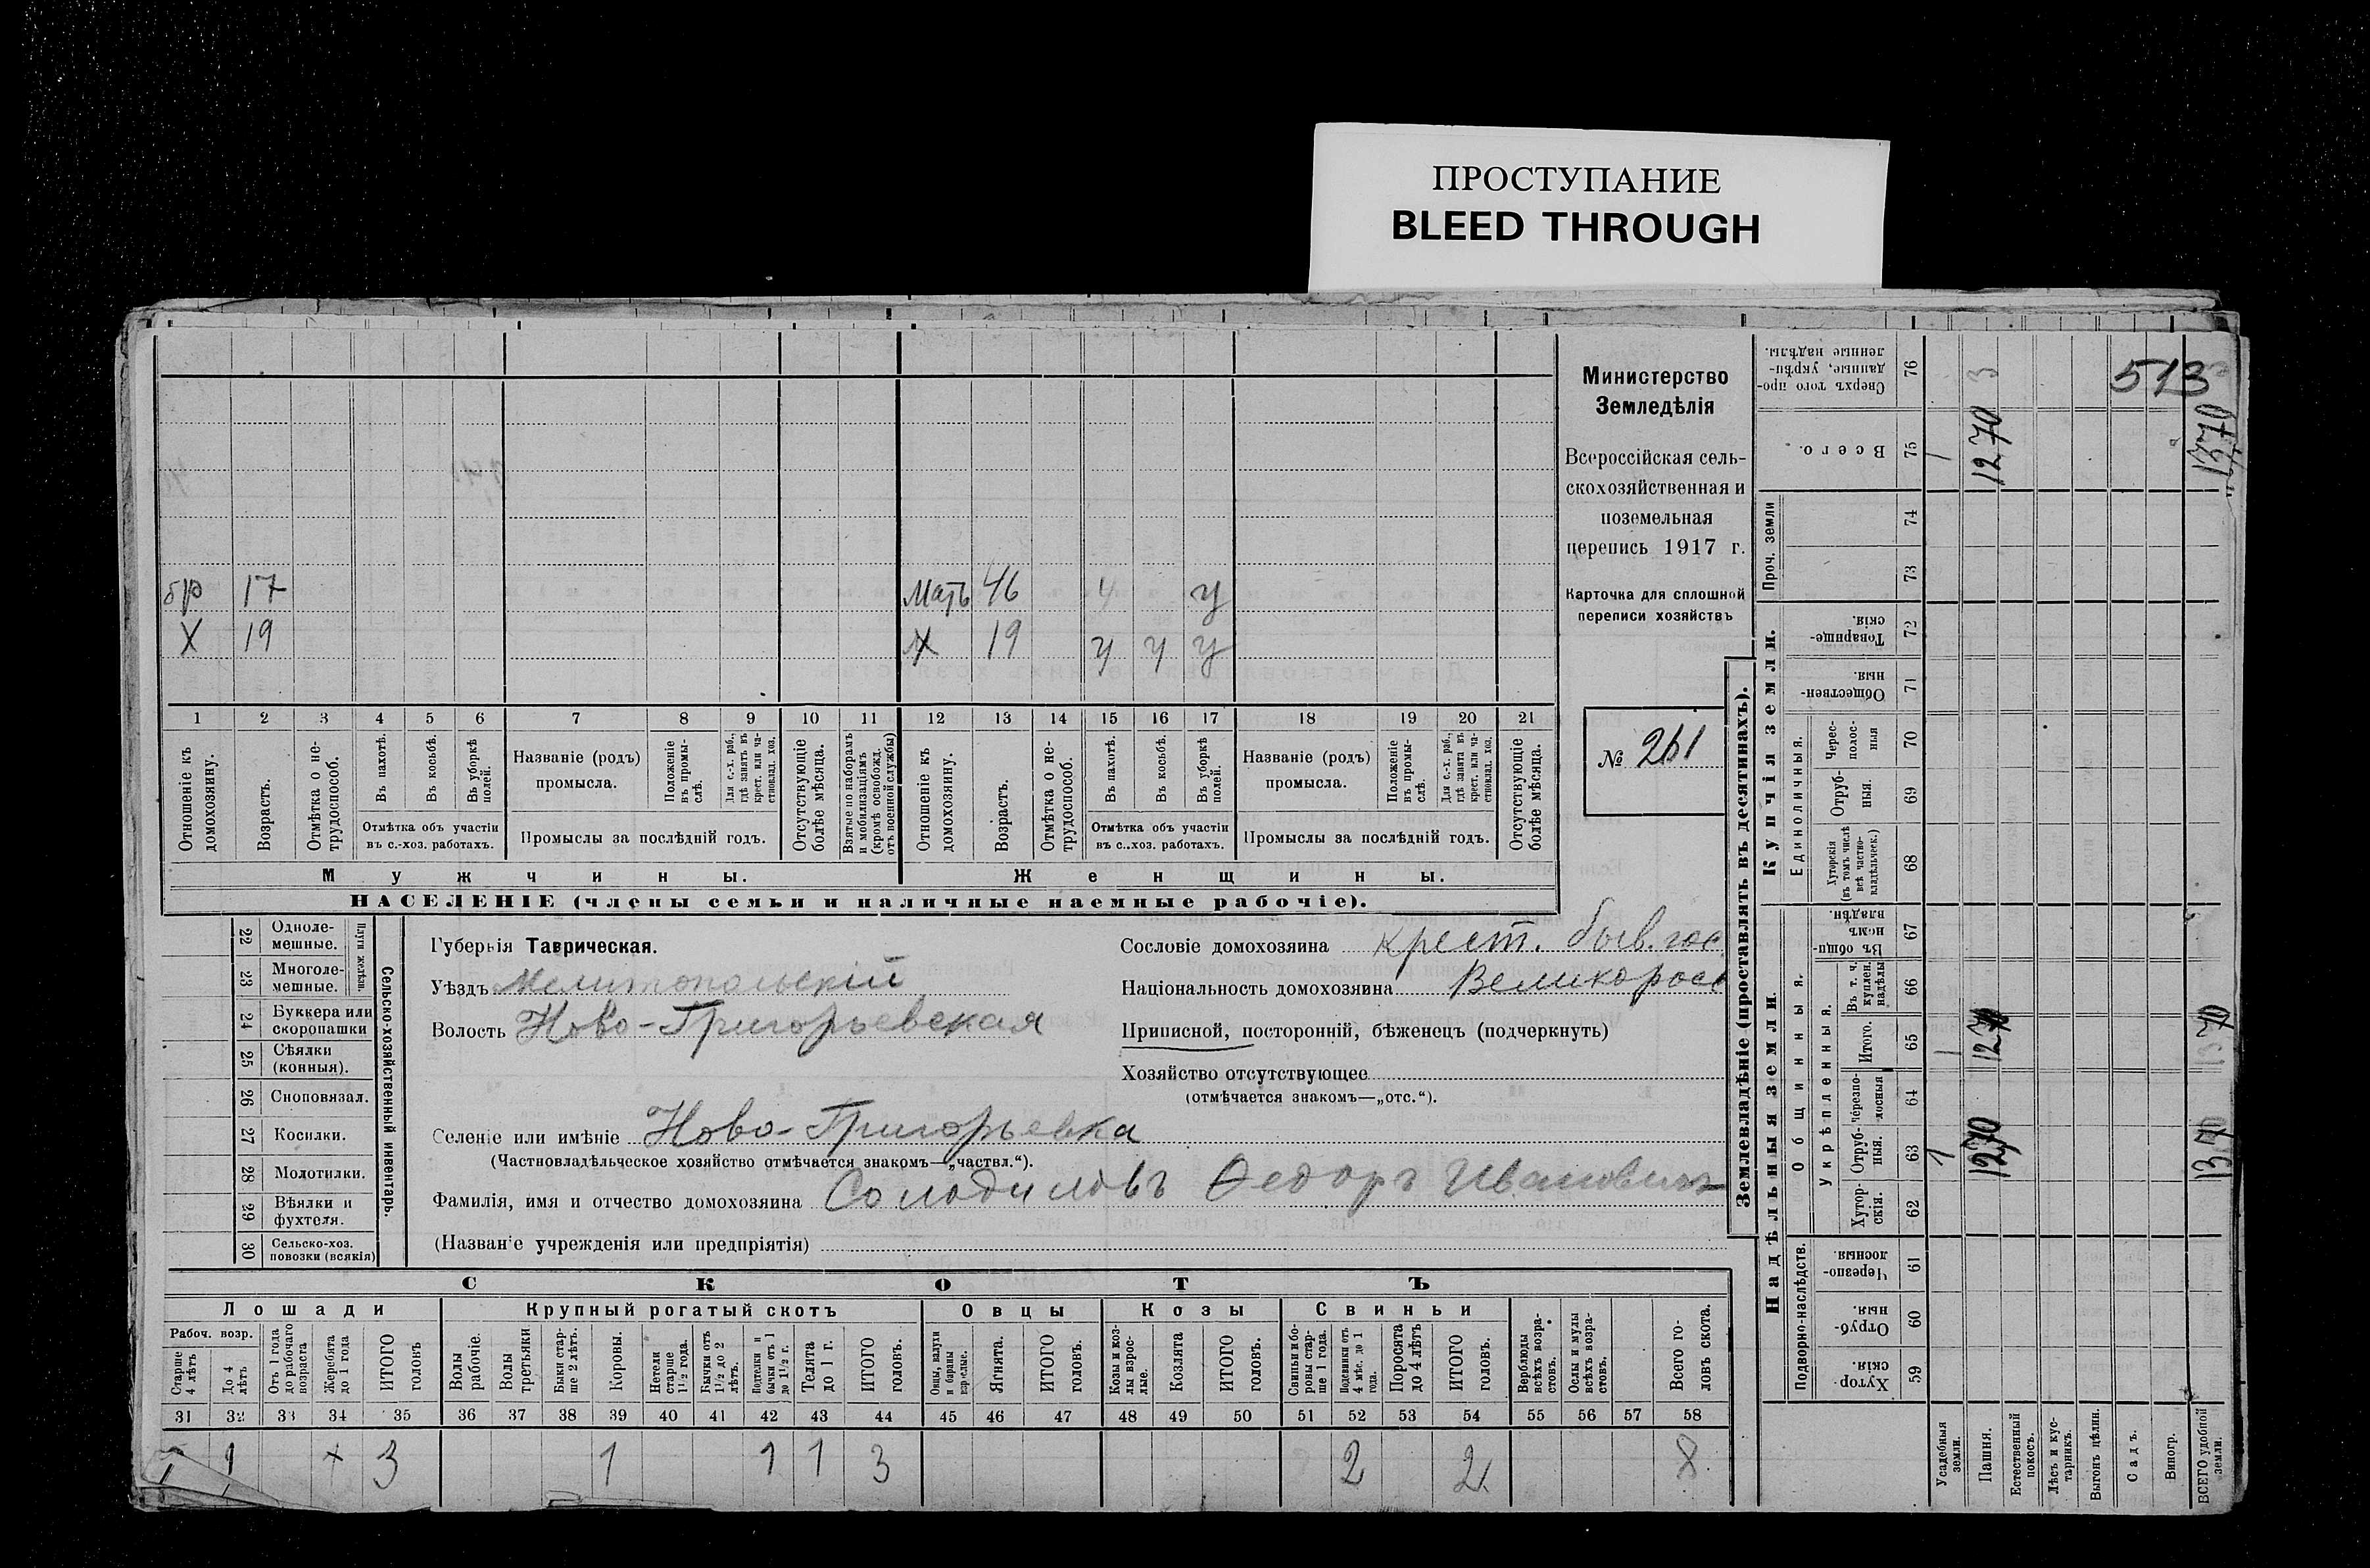 ПРОСТУПАНИЕ
BLEED THROUGH
513
Министерство
Земледѣлія
Всероссійская сель-
скохозяйственная и
поземельная
перепись 1917 г.
Карточка для сплошной
переписи хозяйствъ
№ 261
бр 17 Мать 46 у у
Х 19 Х 19 у у у
1 2 3 4 5 6 7 8 9 10 11 12 13 14 15 16 17 18 19 20 21
Отношеніе къ домохозяину.
Возрастъ.
Отмѣтка о не-трудоспособ.
Въ пахотѣ.
Въ косьбѣ.
Въ уборкѣ полей.
Отмѣтка объ участіи
въ с.-хоз. работахъ.
Названіе (родъ)
промысла.
Положеніе въ промы-слѣ.
Для с.-х. раб., гдѣ занятъ въ крест. или ча-стновлад. хоз.
Промыслы за послѣдній годъ.
Отсутствующіе болѣе мѣсяца.
Взятые по наборамъ и мобилизаціямъ (кромѣ освобожд. отъ военной службы)
Отношеніе къ домохозяину.
Возрастъ.
Отмѣтка о не-трудоспособ.
Въ пахотѣ.
Въ косьбѣ.
Въ уборкѣ полей.
Отмѣтка объ участіи
въ с..хоз. работахъ.
Названіе (родъ)
промысла.
Положеніе въ промы-слѣ.
Для с.-х. раб., гдѣ занята въ крест. или ча-стновлад. хоз.
Промыслы за послѣдній годъ.
Отсутствующіе болѣе мѣсяца.
Мужчины. Женщины.
НАСЕЛЕНІЕ (члены семьи и наличные наемные рабочіе).
22 Одноле-мешные.
23 Многоле-мешные.
Плуги желѣзн.
24 Буккера или скоропашки
25 Сѣялки (конныя).
26 Сноповязал.
27 Косилки.
28 Молотилки.
29 Вѣялки и фухтеля.
30 Сельско-хоз. повозки (всякія)
Сельско-хозяйственный инвентарь.
Губернія Таврическая.
Уѣздъ Мелитопольскій
Волость Ново-Григорьевская
Сословіе домохозяина крест. быв. гос
Національность домохозяина Великоросс
Приписной, посторонній, бѣженецъ (подчеркнуть)
Хозяйство отсутствующее
(отмѣчается знакомъ—„отс.“).
Селеніе или имѣніе Ново-Григорьевка
(Частновладѣльческое хозяйство отмѣчается знакомъ—„частвл.“).
Фамилія, имя и отчество домохозяина Солодиловъ Ѳедоръ Ивановичъ
(Названіе учрежденія или предпріятія)
СКОТЪ
Лошади Крупный рогатый скотъ Овцы Козы Свиньи
Рабоч. возр.
Старше 4 лѣтъ
До 4 лѣтъ
Отъ 1 года до рабочаго возраста
Жеребята до 1 года
ИТОГО головъ
Волы рабочіе.
Волы третьяки
Быки стар-ше 2 лѣтъ.
Коровы.
Нетели старше 1½ года.
Бычки отъ 1½ до 2 лѣтъ.
Подтелки и бычки отъ 1 до 1½ г.
Телята до 1 г.
ИТОГО головъ.
Овцы, валухи и бараны взрослые.
Ягнята.
ИТОГО головъ.
Козы и коз-лы взрос-лые.
Козлята
ИТОГО головъ.
Свиньи и бо-ровы стар-ше 1 года.
Подсвинки отъ 4 мѣс. до 1 года.
Поросята до 4 лѣтъ
ИТОГО головъ.
Верблюды всѣхъ возра-стовъ.
Ослы и мулы всѣхъ возра-стовъ.
Всего го-ловъ скота.
31 32 33 34 35 36 37 38 39 40 41 42 43 44 45 46 47 48 49 50 51 52 53 54 55 56 57 58
1 1 + 3 1 1 1 3 2 2 8
Землевладѣніе (проставлять въ десятинахъ).
Купчія земли.
Надѣльныя земли
Сверхъ того про-данные, укрѣп-ленные надѣлы. 76
Всего. 75
Проч. земли
74
73
Товарище-скія. 72
Обществен-ныя. 71
Единоличныя.
Черес-полос-ныя 70
Отруб-ныя. 69
Хуторскія (въ томъ числѣ всѣ частно-владѣльческ.) 68
Общинныя.
Въ общи-номъ владѣн. 67
Укрѣпленныя.
Въ т. ч. куплен. надѣлы 66
Итого. 65
Черезпо-лосныя 64
Отруб-ныя. 63
Хутор-скія. 62
Подворно-наслѣдств.
Черезпо-лосныя 61
Отруб-ныя. 60
Хутор-скія. 59
Усадебныя земли.
Пашня.
Естественный покосъ.
Лѣсъ и кус-тарникъ.
Выгонъ цѣлин.
Садъ.
Виногр.
ВСЕГО удобной земли.
1 1270 3 1370
1 1270 1370
1 1270 1370